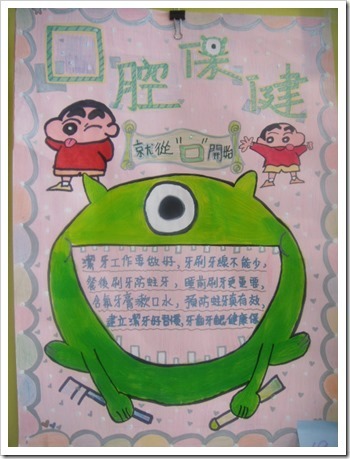 口腔保健
就從“口”開始
潔牙工作要做好,牙刷牙線不能少,
餐後刷牙防蛀牙,睡前刷牙更重要,
含氟牙膏漱口水,預防蛀牙真有效,
建立潔牙好習慣,牙齒牙齦健康保